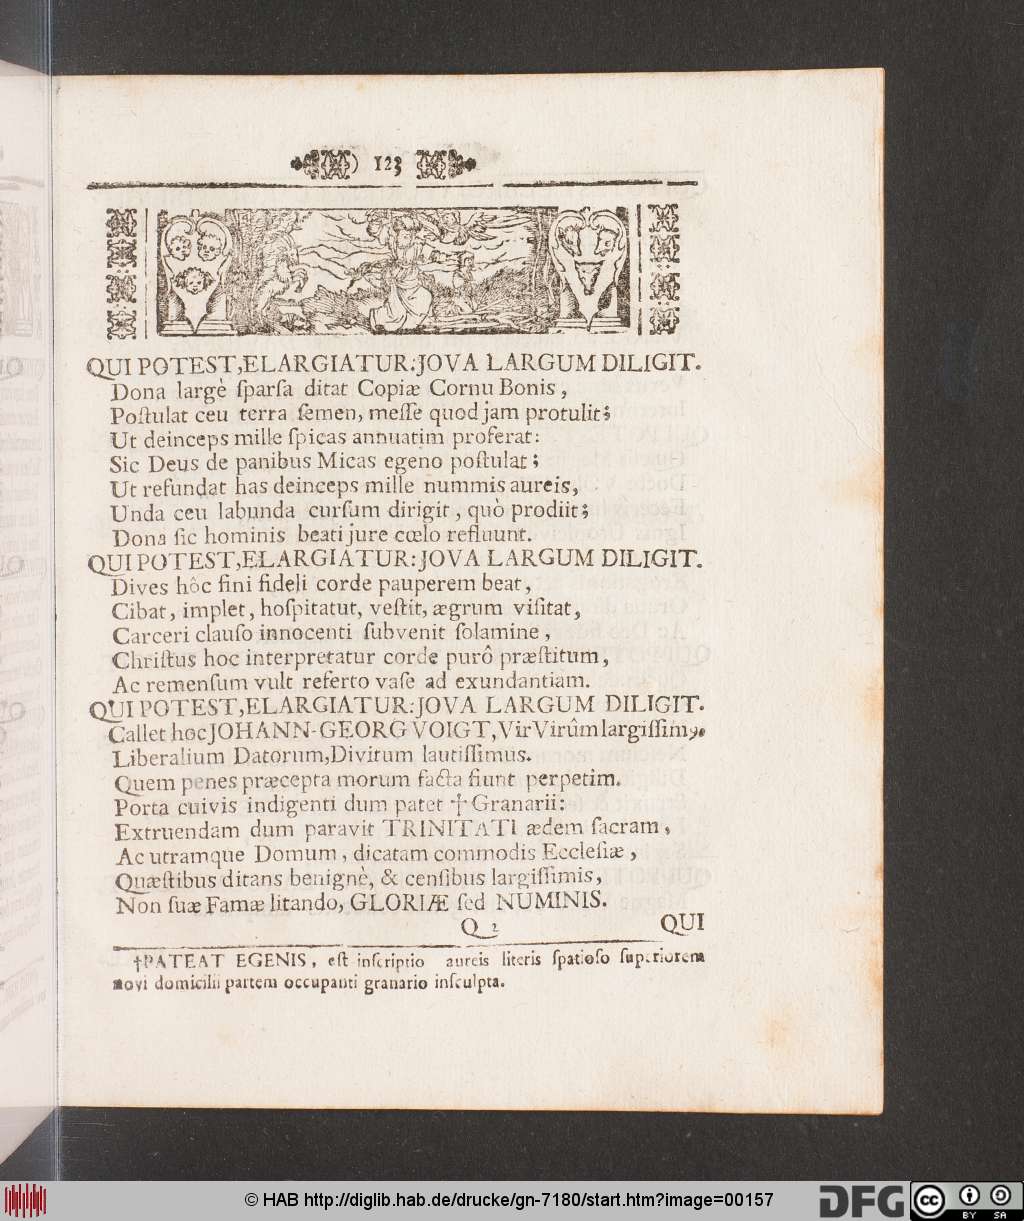 ) 123
QUI POTEST,ELARGIATUR:JOVA LARGUM DILIGIT.
Dona largè ſparſa ditat Copiæ Cornu Bonis,
Poſtulat ceu terra ſemen, meſſe quod jam protulit;
Ut deinceps mille ſpicas annuatim proferat:
Sic Deus de panibus Micas egeno poſtulat;
Ut refundat has deinceps mille nummis aureis,
Unda ceu labunda curſum dirigit, quò prodiit;
Dona ſic hominis beati jure cœlo refluunt.
QUI POTEST,ELARGIATUR:JOVA LARGUM DILIGIT.
Dives hôc fini fideli corde pauperem beat,
Cibat, implet, hoſpitatut, veſtit, ægrum viſitat,
Carceri clauſo innocenti ſubvenit ſolamine,
Chriſtus hoc interpretatur corde purô præſtitum,
Ac remenſum vult referto vaſe ad exundantiam.
QUI POTEST,ELARGIATUR:JOVA LARGUM DILIGIT.
Callet hoc JOHANN-GEORG VOIGT, Vir Virûm largiſſimꝰ
Liberalium Datorum,Divitum lautiſſimus.
Quem penes præcepta morum facta fiunt perpetim.
Porta cuivis indigenti dum patet † Granarii:
Extruendam dum paravit TRINITATI ædem ſacram,
Ac utramque Domum, dicatam commodis Eccleſiæ,
Quæſtibus ditans benignè, & cenſibus largiſſimis,
Non ſuæ Famæ litando, GLORIÆ ſed NUMINIS.
Q 2 QUI
†PATEAT EGENIS, eſt inſcriptio aureis literis ſpatioſo ſuperiorem
novi domicilii partem occupanti granario inſculpta.
© HAB http://diglib.hab.de/drucke/gn-7180/start.htm?image=00157
DFG
cc BY SA